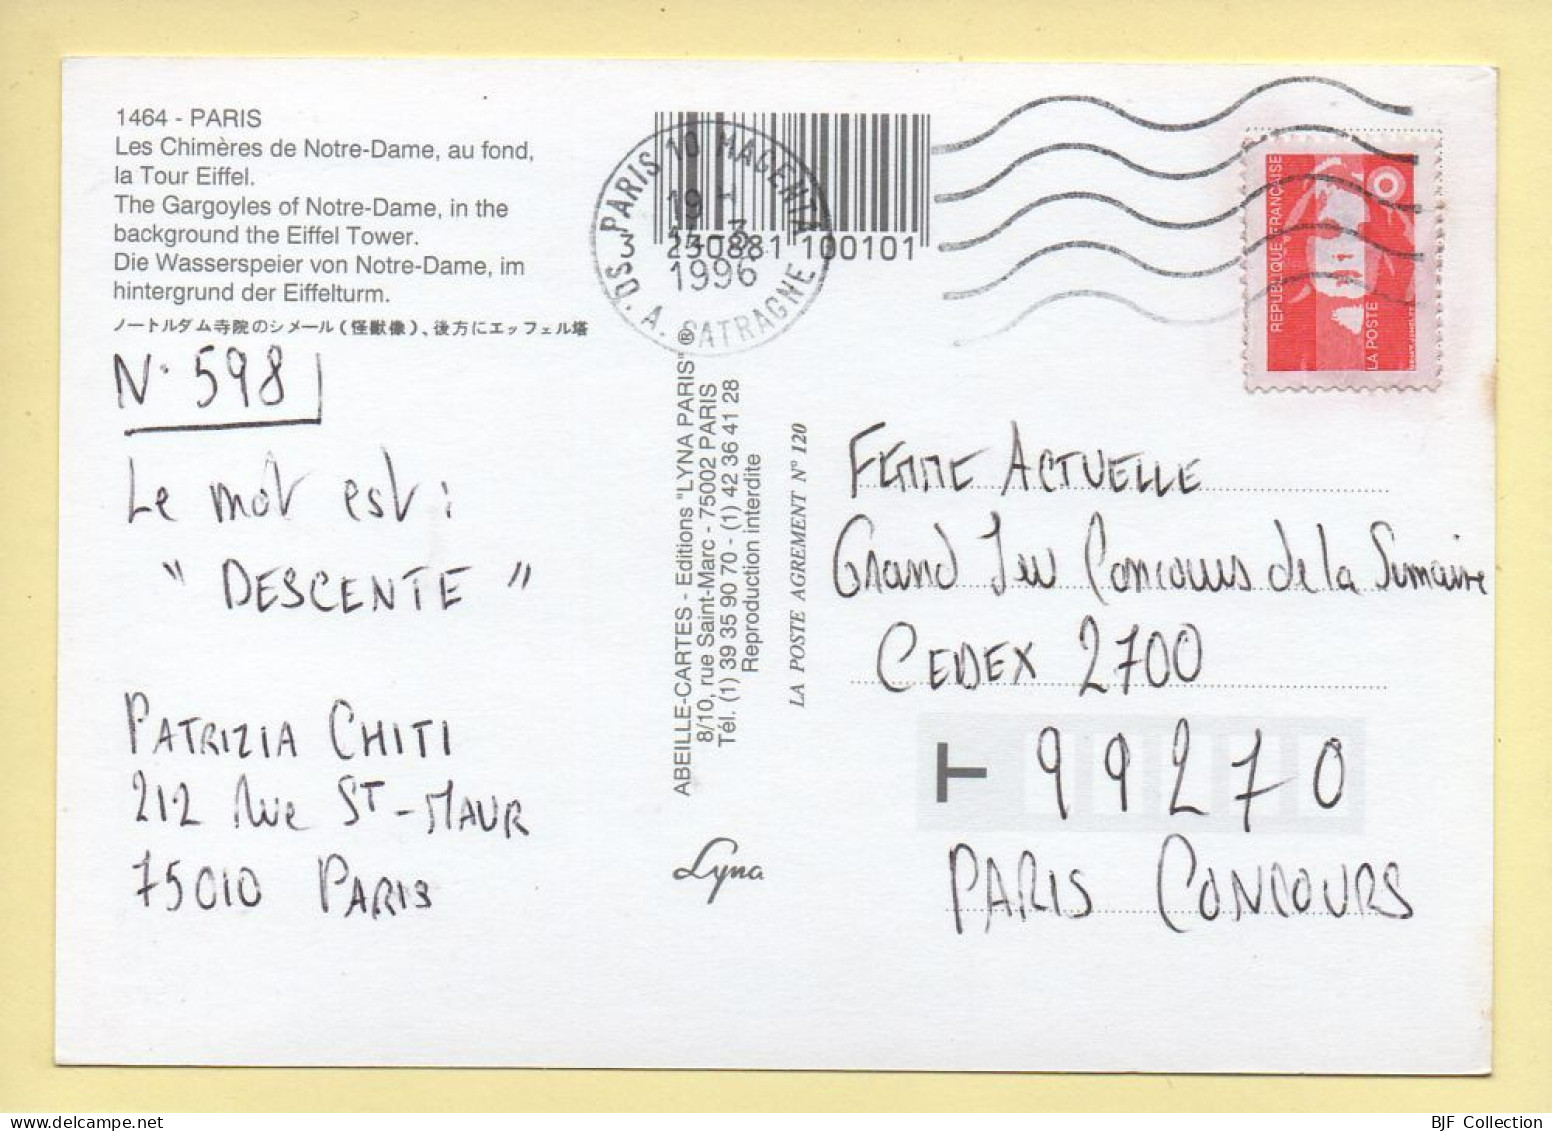 1464 - PARIS
Les Chimères de Notre-Dame, au fond,
la Tour Eiffel.
The Gargoyles of Notre-Dame, in the
background the Eiffel Tower.
Die Wasserspeier von Notre-Dame, im
hintergrund der Eiffelturm.
ノートルダム寺院のシメール(怪獣像)、後方にエッフェル塔
N° 598
Le mot est :
" DESCENTE "
PATRIZIA CHITI
212 Rue ST-MAUR
75010 PARIS
3 250881 100101
PARIS 10 MAGENTA
19 -
1996
DS. A.
ABEILLE-CARTES - Editions "LYNA PARIS" ®
8/10, rue Saint-Marc - 75002 PARIS
Tél. (1) 39 35 90 70 - (1) 42 36 41 28
Reproduction interdite
LA POSTE AGREMENT N° 120
Lyna
REPUBLIQUE FRANÇAISE
LA POSTE
FEMME ACTUELLE
Grand Jeu Concours de la Semaine
CEDEX 2700
T 99270
PARIS CONCOURS
BJF Collection